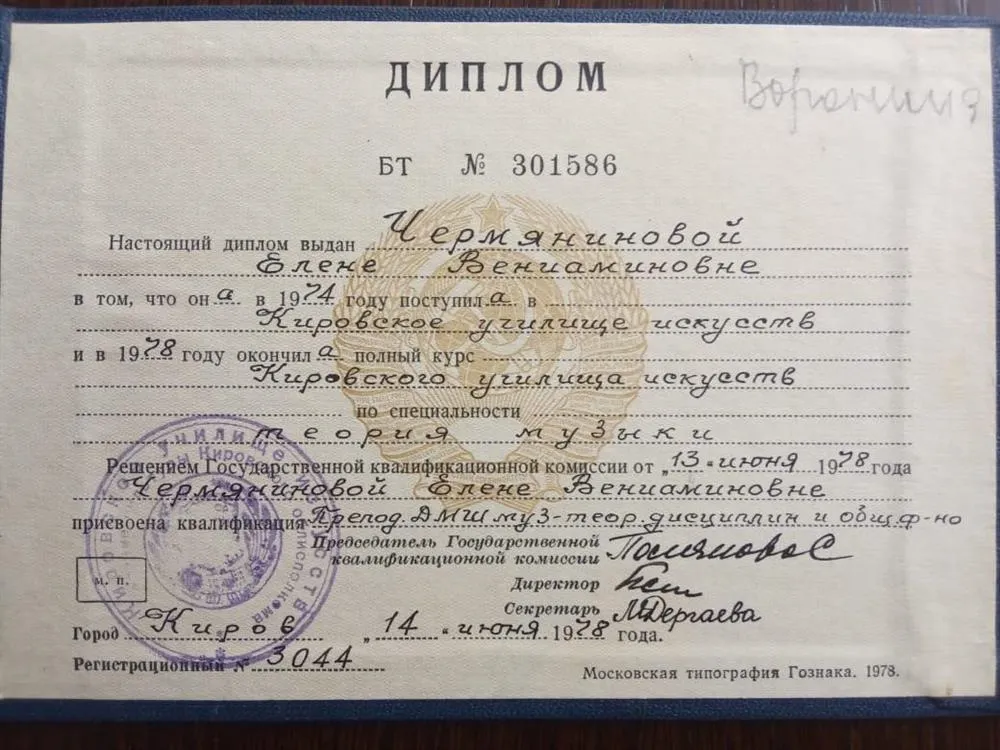 ДИПЛОМ
Воронина
БТ № 301586
Настоящий диплом выдан Чермяниновой
Елене Вениаминовне
в том, что он а в 1974 году поступил а в
Кировское училище искусств
и в 1978 году окончил а полный курс
Кировского училища искусств
по специальности
теория музыки
Решением Государственной квалификационной комиссии от „13“ июня 1978 года
Чермяниновой Елене Вениаминовне
присвоена квалификация Препод. ДМШ муз-теор. дисциплин и общ. ф-но
Председатель Государственной
квалификационной комиссии
Директор
Секретарь МДергаева
м. п.
Город Киров „14“ июня 1978 года.
Регистрационный № 3044
Московская типография Гознака. 1978.
училище искусств